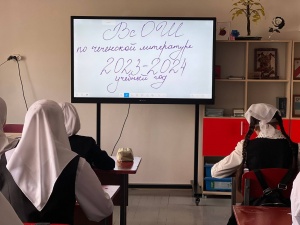 ВсОШ
по чеченской литературе
2023-2024
учебный год